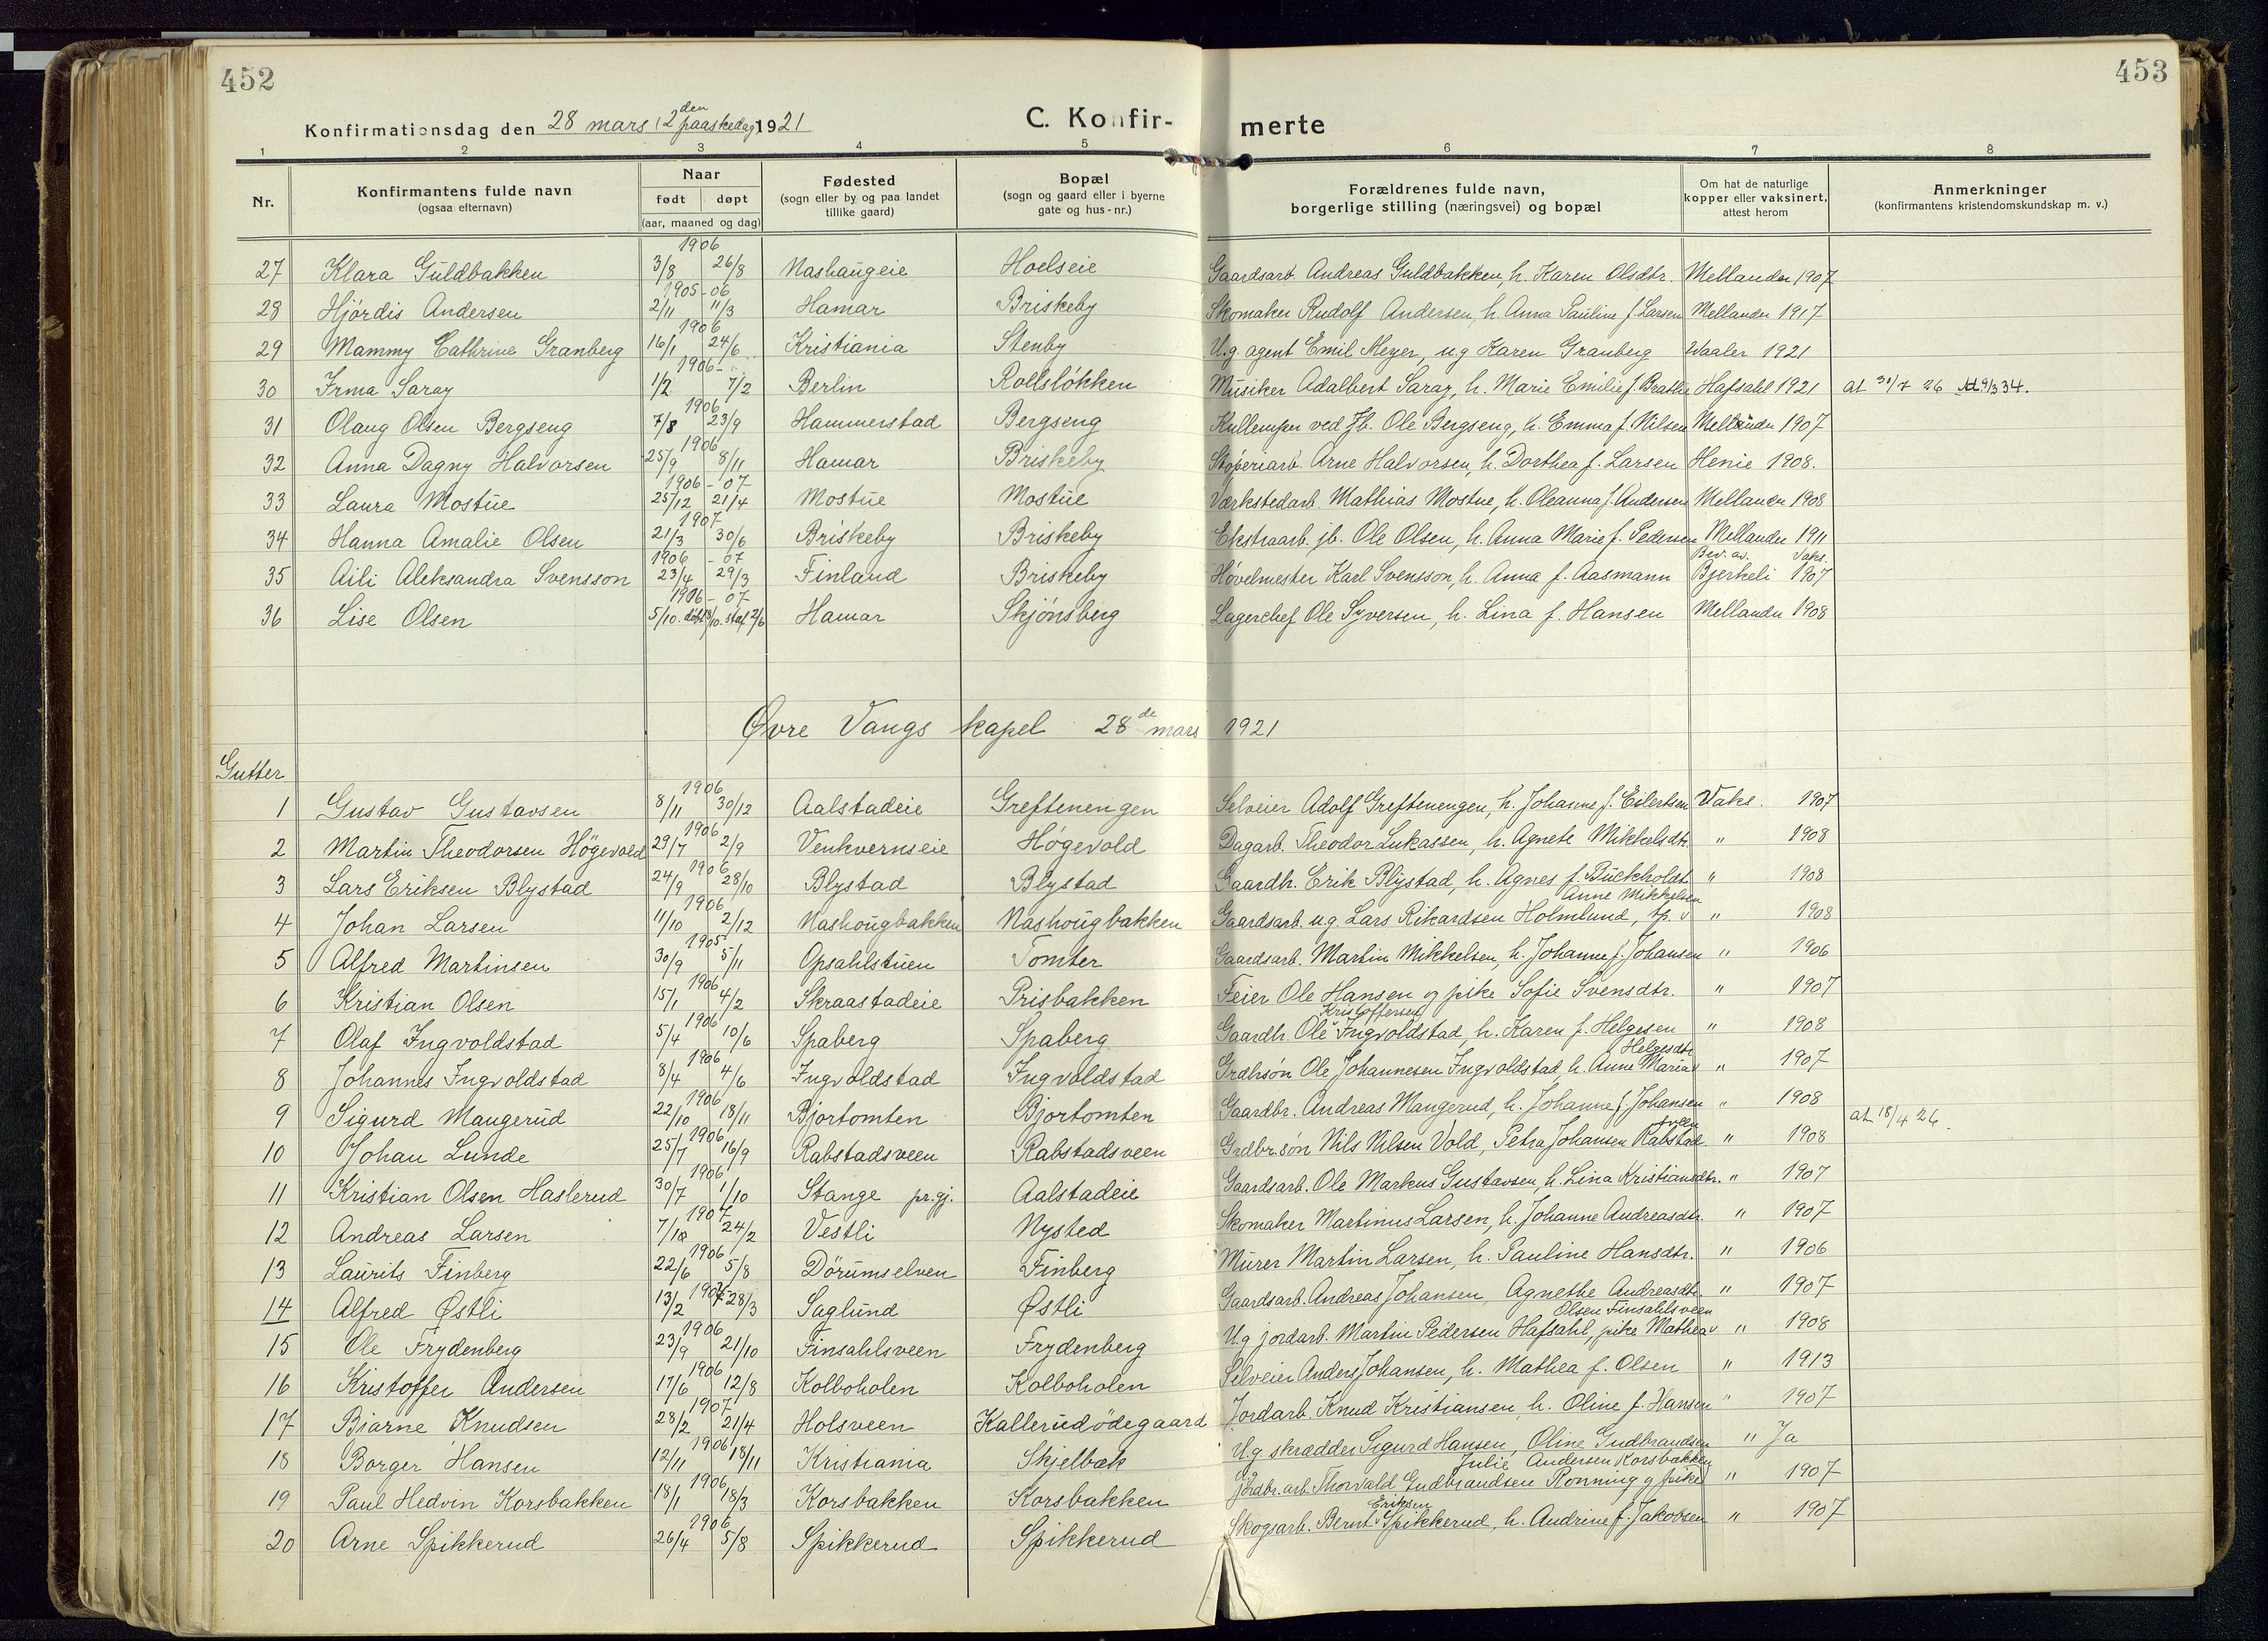 452
453
Konfirmationsdag den 28 mars (2den paaskedag) 1921
C. Konfirmerte
1 2 3 4 5 6 7 8
Nr. Konfirmantens fulde navn (ogsaa efternavn) Naar født døpt (aar, maaned og dag) Fødested (sogn eller by og paa landet tillike gaard) Bopæl (sogn og gaard eller i byerne gate og hus-nr.) Forældrenes fulde navn, borgerlige stilling (næringsvei) og bopæl Om hat de naturlige kopper eller vaksinert, attest herom Anmerkninger (konfirmantens kristendomskundskap m. v.)
27 Klara Guldbakken 1906 3/8 26/8 Nashaugeie Hoelseie Gaardsarb. Andreas Guldbakken, h. Karen Olsdtr. Mellander 1907
28 Hjördis Andersen 1905-06 2/11 11/3 Hamar Briskeby Skomaker Rudolf Andersen, h. Anna Pauline f. Larsen Mellander 1917
29 Mammy Cathrine Granberg 1906 16/1 24/6 Kristiania Stenby U.g. agent Emil Meyer, ug Karen Granberg Waaler 1921
30 Irma Saray 1906- 1/2 7/2 Berlin Rollsløkken Musiker Adalbert Saray, h. Marie Emilie f. Brathe Hafsahl 1921 at 31/7 26 At 9/3 34.
31 Olaug Olsen Bergseng 1906 7/8 23/9 Hammerstad Bergseng Kullemper ved Jb. Ole Bergseng, h. Emma f. Nilsen Mellander 1907
32 Anna Dagny Halvorsen 1906 25/9 8/11 Hamar Briskeby Støperiarb. Arne Halvorsen, h. Dorthea f. Larsen Henie 1908.
33 Laura Mostue 1906-07 25/12 21/4 Mostue Mostue Værkstedarb. Mathias Mostue, h. Oleanna f. Andersen Mellander 1908
34 Hanna Amalie Olsen 1907 21/3 30/6 Briskeby Briskeby Ekstraarb. jb. Ole Olsen, h. Anna Marie f. Pedersen Mellander 1911
35 Aili Aleksandra Svensson 1906-07 23/4 29/3 Finland Briskeby Høvelmester Karl Svensson, h. Anna f. Aasmann Bev. av. Vaks. Bjerkeli 1907
36 Lise Olsen 1906-07 5/10. Hamar Skjønsberg Lagerchef Ole Syversen, h. Lina f. Hansen Mellander 1908
Øvre Vangs kapel 28de mars 1921
Gutter
1 Gustav Gustavsen 1906 8/11 30/12 Aalstadeie Greftenengen Selveier Adolf Greftenengen, h. Johanne f. Eilertsen Vaks. 1907
2 Martin Theodorsen Högevold 1906 29/7 2/9 Venkvernseie Høgevold Dagarb. Theodor Lukassen, h. Agnete Mikkelsdtr " 1908
3 Lars Eriksen Blystad 1906 24/9 28/10 Blystad Blystad Gaardbr. Erik Blystad, h. Agnes f. Buckholdt " 1908
4 Johan Larsen 1906 11/10 2/12 Nashougbakken Nashougbakken Gaardsarb. ug. Lars Rikardsen Holmlund, tp. Anne Mikkelsen " 1908
5 Alfred Martinsen 1905 30/9 5/11 Opsahlstuen Tomter Gaardsarb. Martin Mikkelsen, h. Johanne f. Johansen " 1906
6 Kristian Olsen 1906 15/1 4/2 Skraastadeie Prisbakken Feier Ole Hansen og pike Sofie Svensdtr. " 1907
7 Olaf Ingvoldstad 1906 5/4 10/6 Spaberg Spaberg Gaardbr. Ole Kristoffersen Ingvoldstad, h. Karen f. Helgesen " 1908
8 Johannes Ingvoldstad 1906 8/4 4/6 Ingvoldstad Ingvoldstad Grdbrsön Ole Johannesen Ingvoldstad, h. Anne Maria Helgesdtr " 1907
9 Sigurd Maugerud 1906 22/10 18/11 Bjortomten Bjortomten Gaardbr. Andreas Maugerud, h. Johanne f. Johansen " 1908 at 18/4 26.
10 Johan Lunde 1906 25/7 16/9 Rabstadsveen Rabstadsveen Grdbr.søn Nils Nilsen Vold, Petra Johansen Rabstadsveen " 1908
11 Kristian Olsen Haslerud 1906 30/7 1/10 Stange pr.gj. Aalstadeie Gaardsarb. Ole Markus Gustavsen, h. Lina Kristiansdtr. " 1907
12 Andreas Larsen 1907 24/2 Vestli Nysted Skomaker Martinus Larsen, h. Johanne Andreasdtr. " 1907
13 Laurits Finberg 1906 22/6 5/8 Dörumselven Finberg Murer Martin Larsen, h. Pauline Hansdtr. " 1906
14 Alfred Østli 13/2 28/3 Saglund Østli Gaardsarb. Andreas Johansen, Agnethe Andreasdtr. " 1907
15 Ole Frydenberg 1906 23/9 21/10 Finsahlsveen Frydenberg U.g jordarb. Martin Pedersen Hafsahl, pike Mathea Olsen Finsahlsveen " 1908
16 Kristoffer Andersen 1906 17/6 12/8 Kolboholen Kolboholen Selveier Anders Johansen, h. Mathea f. Olsen " 1913
17 Bjarne Knudsen 1907 28/2 21/4 Holsveen Kallerudødegaard Jordarb. Knud Kristiansen, h. Oline f. Hansen " 1907
18 Borger Hansen 1906 12/11 18/11 Kristiania Skjelbæk U.g. skrædder Sigurd Hansen, Oline Gudbrandsen " Ja
19 Paul Hedvin Korsbakken 1906 18/1 18/3 Korsbakken Korsbakken Jordbr. arb. Thorvald Gudbrandsen Rønning og pike Julie Andersen Korsbakken " 1907
20 Arne Spikkerud 1906 26/4 5/8 Spikkerud Spikkerud Skogsarb. Bernt Eriksen Spikkerud, h. Andrine f. Jakobsen " 1907